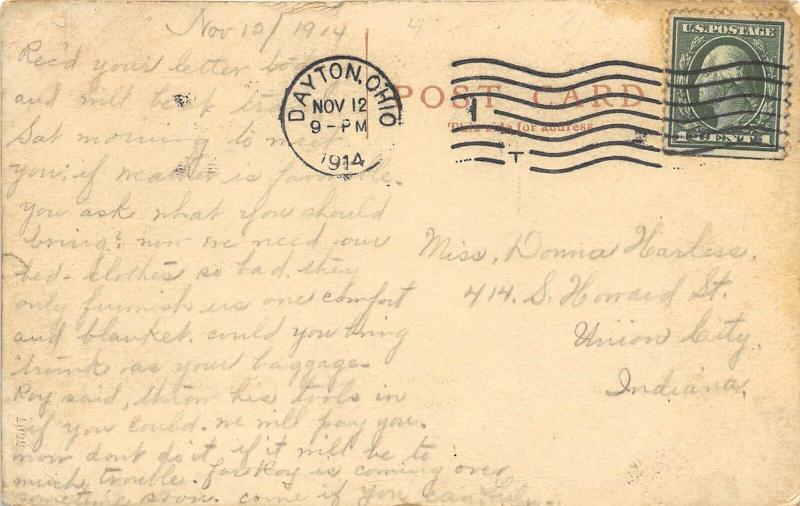 Nov 12/1914
Rec'd your letter
and will be
Sat morning to meet
you, if weather is favorable.
you ask what you should
bring? now we need our
bed-clothes so bad. they
only furnish us one comfort
and blanket. could you bring
trunk as your baggage-
Roy said, throw his tools in
if you could. we will pay you.
now dont do it, if it will be to
much trouble. for Roy is coming over
sometime soon. come if you can
5507
DAYTON, OHIO
NOV 12
9-PM
1914
POST CARD
This side for address
U.S. POSTAGE
1 CENT 1
Miss, Donna Harless.
414. S. Howard St.
Union City.
Indiana.